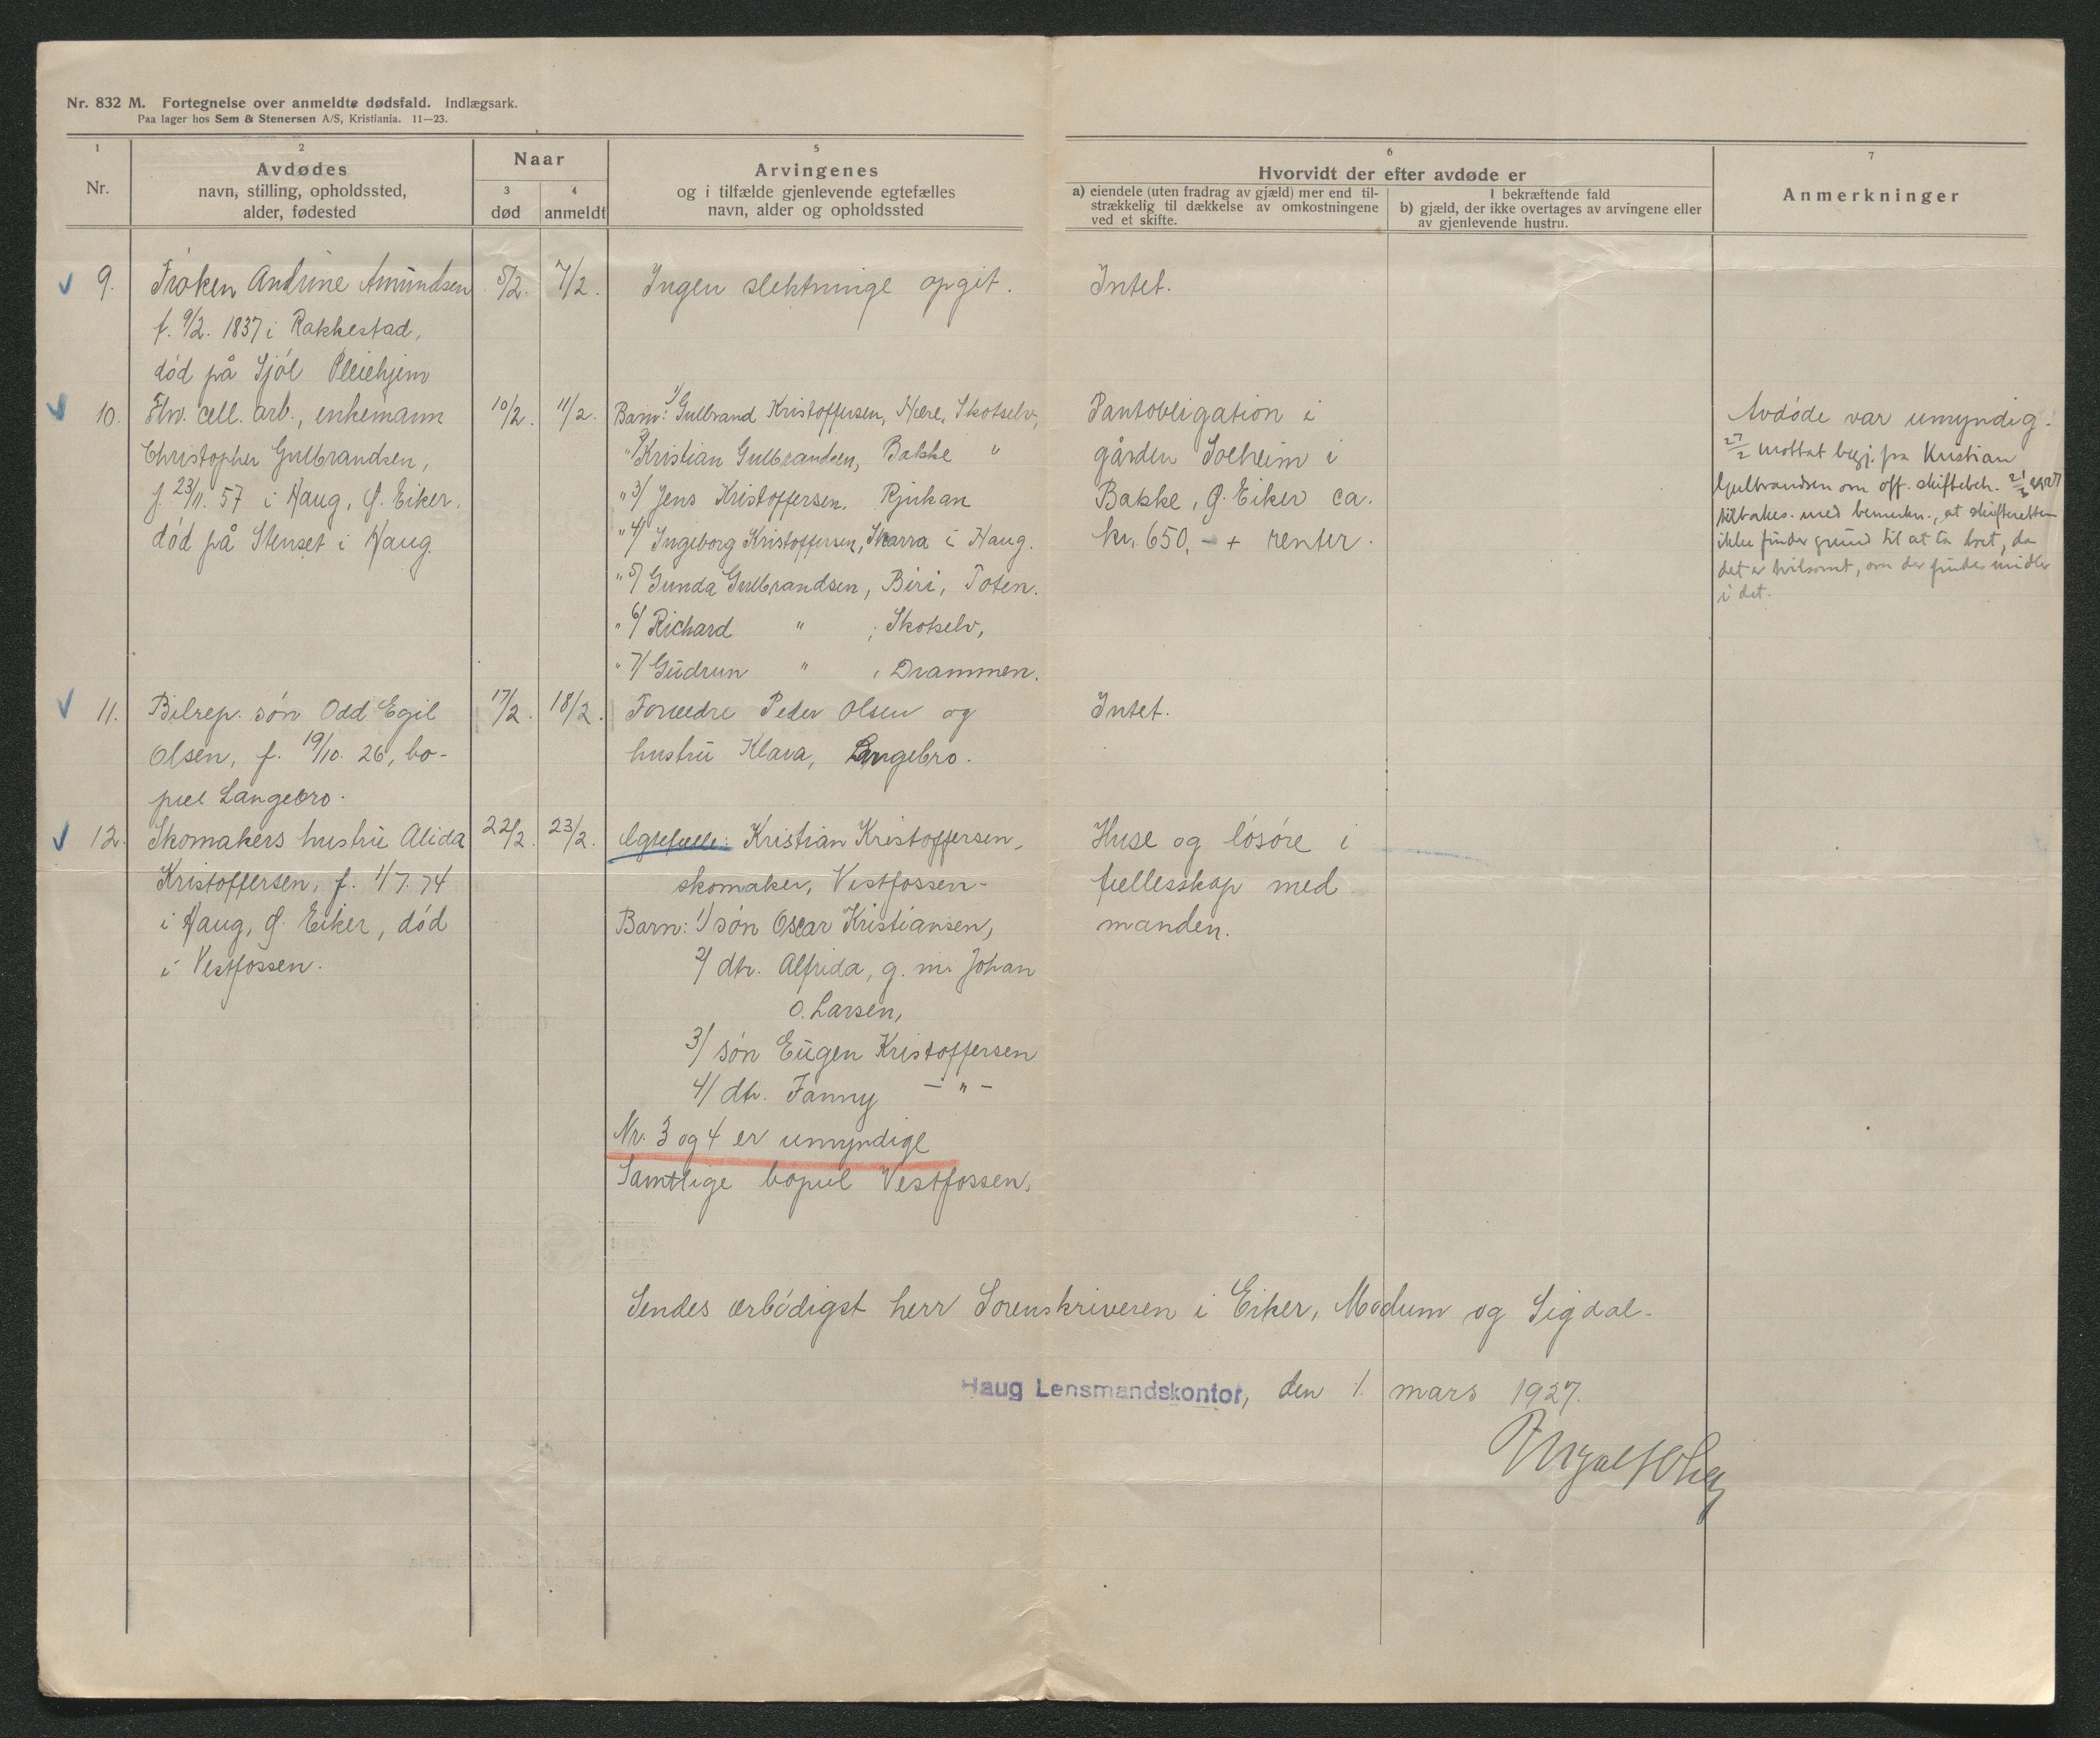 Nr. 832 M. Fortegnelse over anmeldte dødsfald. Indlægsark.
Paa lager hos Sem & Stenersen A/S, Kristiania. 11—23.
1
Nr.
2
Avdødes
navn, stilling, opholdssted,
alder, fødested
Naar
3
død
4
anmeldt
5
Arvingenes
og i tilfælde gjenlevende egtefælles
navn, alder og opholdssted
6
Hvorvidt der efter avdøde er
a) eiendele (uten fradrag av gjæld) mer end til-
strækkelig til dækkelse av omkostningene
ved et skifte.
I bekræftende fald
b) gjæld, der ikke overtages av arvingene eller
av gjenlevende hustru.
7
Anmerkninger
9.
Frøken Andrine Amundsen
f. 9/2. 1837 i Rakkestad,
död på Sjöl Pleiehjem
5/2.
7/2.
Ingen slektninge opgit.
Intet.
10.
Fhv. cell. arb., enkemann
Christopher Gulbrandsen,
f. 23/11. 57 i Haug, Ø. Eiker,
död på Stenset i Haug.
10/2.
11/2.
Barn: 1/ Gulbrand Kristoffersen, Hære, Skotselv,
" 2/ Kristian Gulbrandsen, Bakke "
" 3/ Jens Kristoffersen, Rjukan
" 4/ Ingeborg Kristoffersen, Skarra i Haug.
" 5/ Gunda Gulbrandsen, Biri, Toten.
" 6/ Richard " , Skotselv,
" 7/ Gudrun " , Drammen.
Pantobligation i
gården Solheim i
Bakke, Ø. Eiker ca.
kr. 650,- + renter.
Avdöde var umyndig.
27/2 mottat begj. fra Kristian
Gulbrandsen om off. skiftebeh. 21/3 1927
tilbakes. med bemerkn., at skifteretten
ikke finder grund til at ta boet, da
det er tvilsomt, om der findes midler
i det.
11.
Bilrep. sön Odd Egil
Olsen, f. 19/10. 26, bo-
pæl Langebro.
17/2.
18/2.
Forældre Peder Olsen og
hustru Klara, Langebro.
Intet.
12.
Skomakers hustru Alida
Kristoffersen, f. 1/7. 74
i Haug, Ø. Eiker, död
i Vestfossen.
22/2.
23/2.
Egtefælle: Kristian Kristoffersen,
skomaker, Vestfossen-
Barn: 1/ sön Oscar Kristiansen,
2/ dtr. Alfrida, g. m. Johan
O. Larsen,
3/ sön Eugen Kristoffersen
4/ dtr. Fanny — " —
Nr. 3 og 4 er umyndige
Samtlige bopæl Vestfossen.
Huse og lösöre i
fællesskap med
manden.
Sendes ærbödigst herr Sorenskriveren i Eiker, Modum og Sigdal-
Haug Lensmandskontor, den 1. mars 1927.